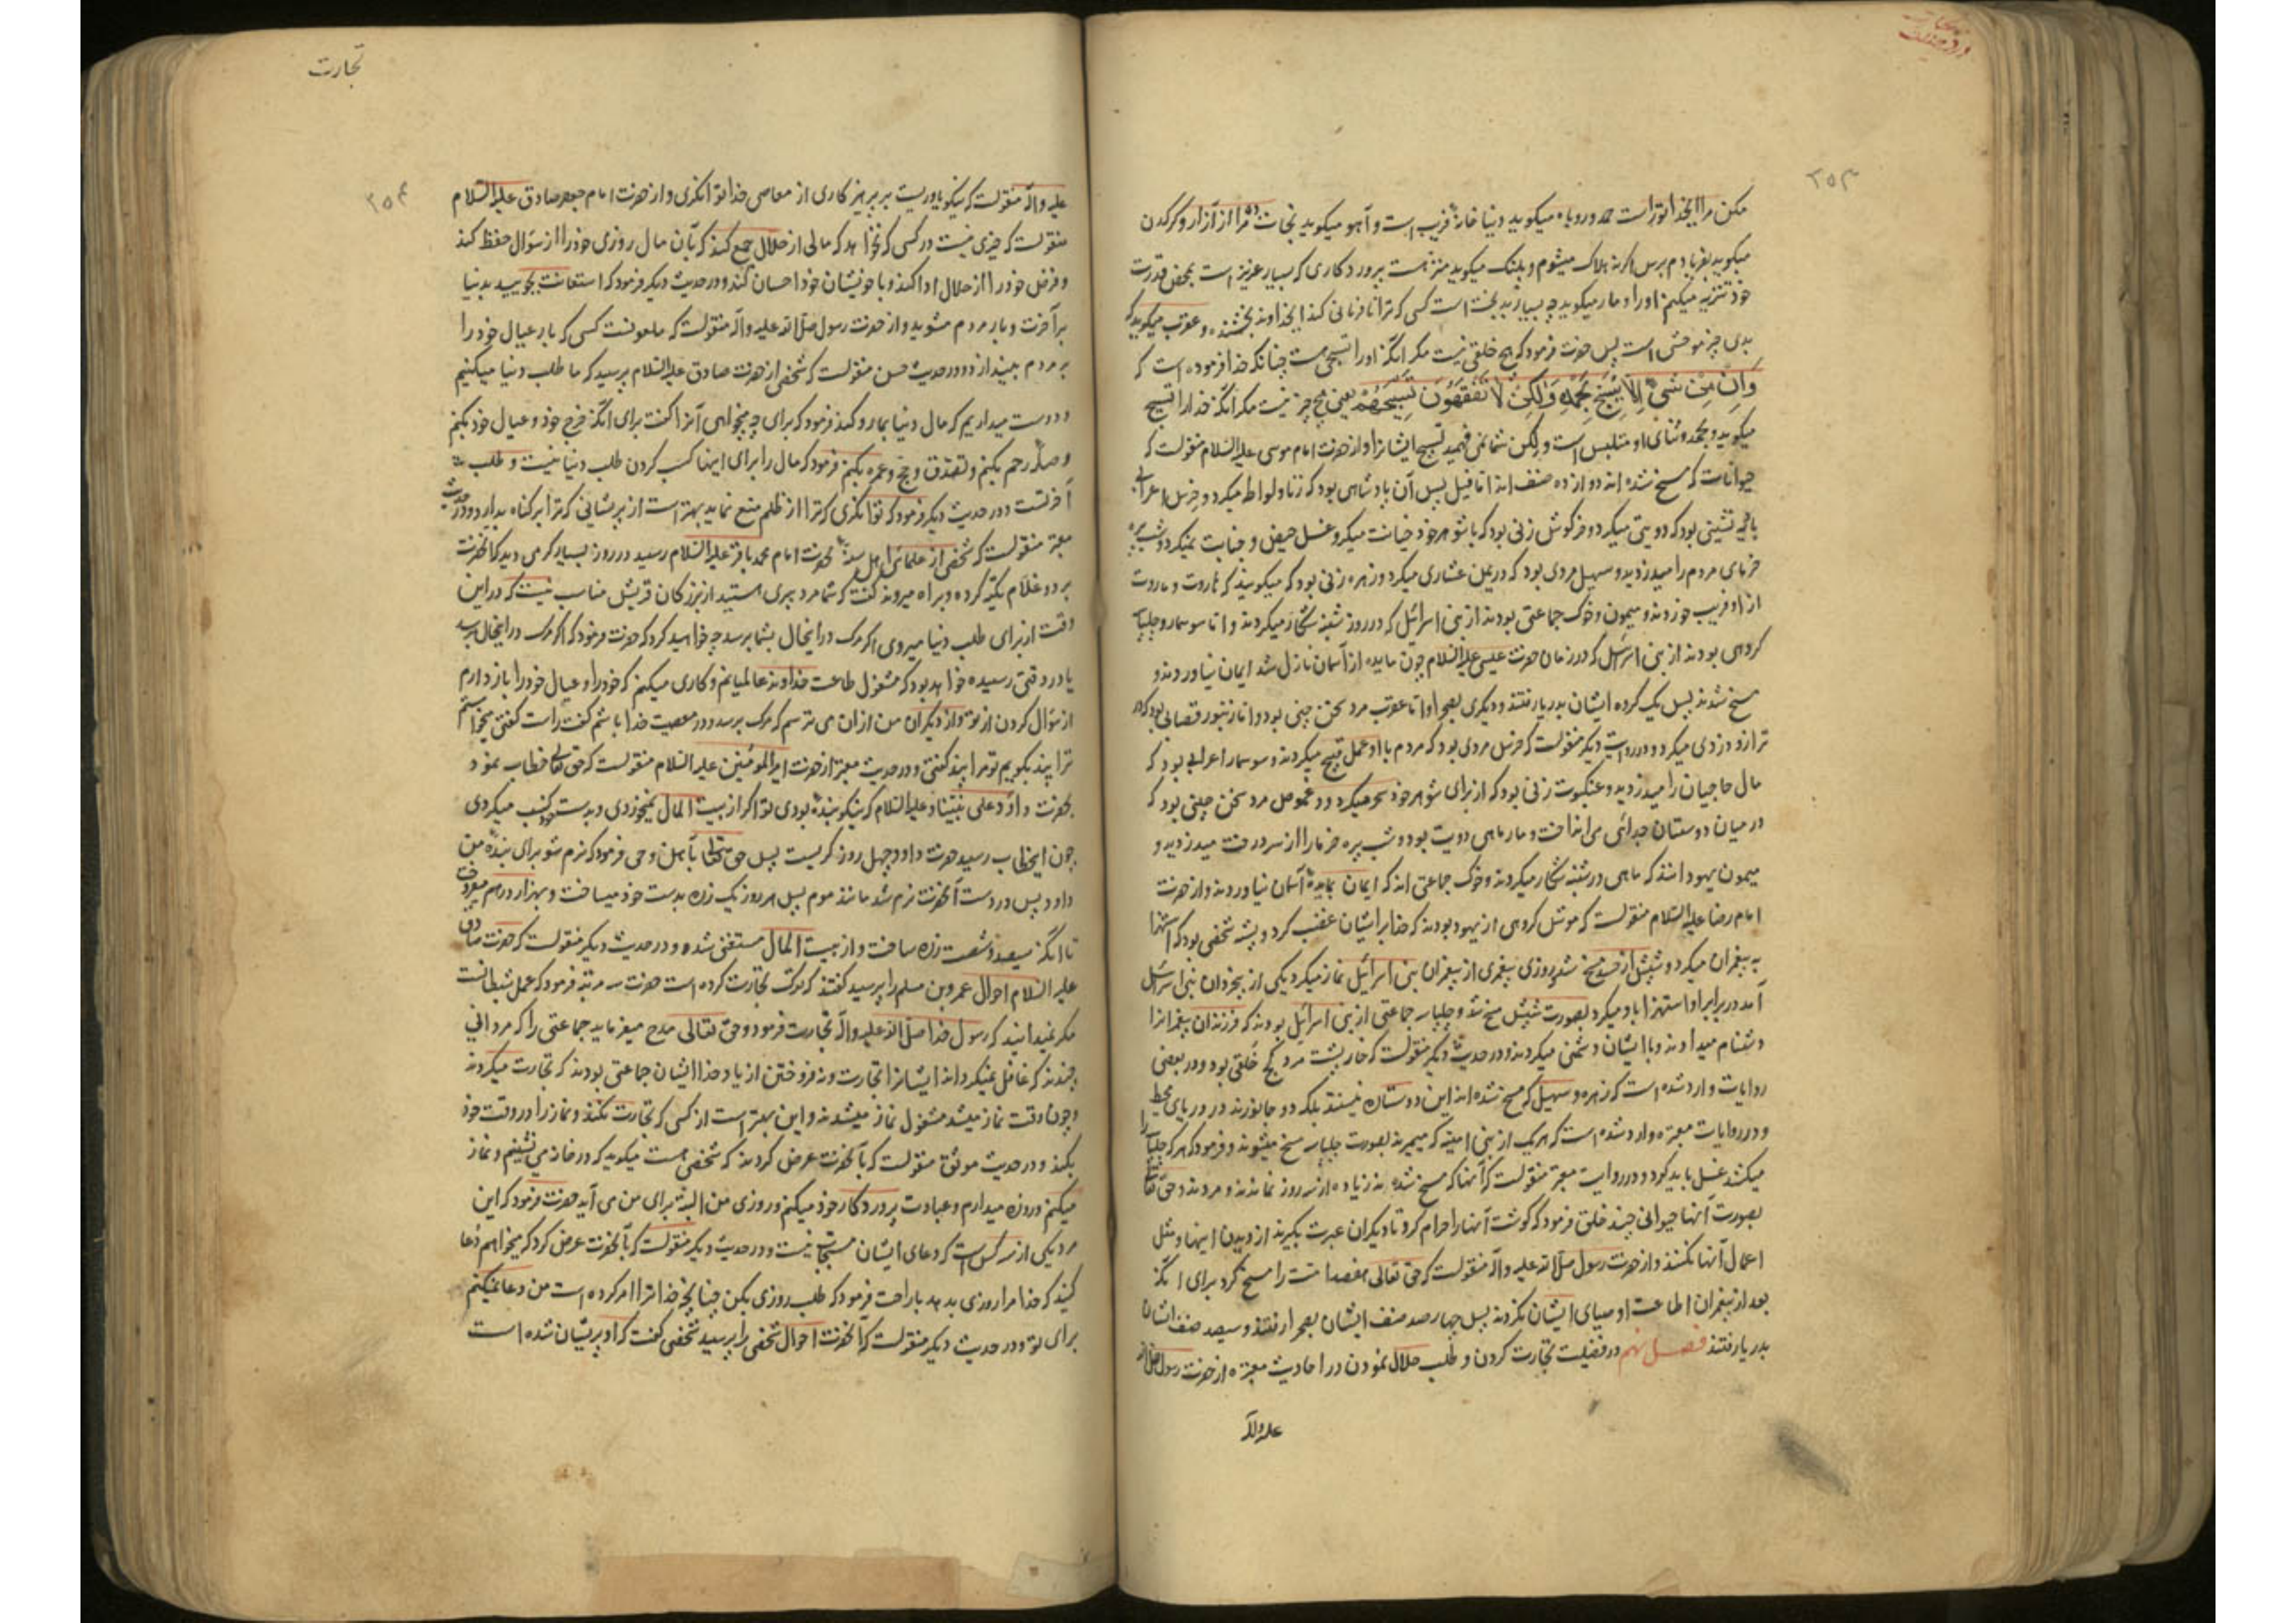 ۲۵۳
مکن مرا ایخداوندا تراست حمد و روباه میکوید دنیا خانهٔ فریب است و آهو میکوید نجات ده مرا از آزار و کرکدن
میکوید بفریادم برس اکرنه هلاک میشوم و پلنک میکوید منزه است پروردکاری که بسیار عزیز است بمحض قدرت
خود تنزیه میکنم او را و مار میکوید چه بسیار بدبخت است کسی که ترا نافرمانی کند ایخداوند بخشنده و عقرب میکوید که
بدی چیز موحش است پس حضرت فرمود که هیچ خلقی نیست مکر انکه او را تسبیحی هست چنانکه خدا فرموده است که
وَاِنْ مِنْ شَیْءٍ اِلّا یُسَبِّحُ بِحَمْدِهِ وَلٰکِنْ لا تَفْقَهُونَ تَسْبیحَهُمْ یعنی هیچ چیز نیست مکر انکه خدا را تسبیح
میکوید و بحمد و ثنای او متلبس است ولیکن شما نمی فهمید تسبیح ایشانرا و از حضرت امام موسی علیه السلام منقولست که
حیوانات که مسخ شده اند دوازده صنف اند اما فیل پس آن پادشاهی بود که زنا و لواط میکرد و خرس اعرابی
بادیه نشینی بود که دیوثی میکرد و خرکوش زنی بود که با شوهر خود خیانت میکرد و غسل حیض و جنابت نمیکرد و شب پره
خرمای مردم را میدزدید و سهیل مردی بود که در یمن عشاری میکرد و زهره زنی بود که میکویند که هاروت و ماروت
از او فریب خوردند و میمون و خوک جماعتی بودند از بنی اسرائیل که در روز شنبه شکار میکردند و اما سوسمار و چلپاسه
کروهی بودند از بنی اسرائیل که در زمان حضرت عیسی علیه السلام چون مایده از آسمان نازل شد ایمان نیاوردند و
مسخ شدند پس یک کروه ایشان بدریا رفتند و دیکری بصحرا و اما عقرب مرد سخن چینی بود و اما زنبور قصابی بود که در
ترازو دزدی میکرد و در روایت دیکر منقولست که خرس مردی بود که مردم با او عمل قبیح میکردند و سوسمار اعرابی بود که
مال حاجیان را میدزدید و عنکبوت زنی بود که از برای شوهر خود سحر میکرد و دعموص مرد سخن چینی بود که
در میان دوستان جدائی می انداخت و مارماهی دیوث بود و شب پره خرما را از سر درخت میدزدید و
میمون یهود اند که ماهی در شنبه شکار میکردند و خوک جماعتی اند که ایمان بمایدهٔ آسمان نیاوردند و از حضرت
امام رضا علیه السلام منقولست که موش کروهی از یهود بودند که خدا بر ایشان غضب کرد و پشه شخصی بود که استهزا
به پیغمبران میکرد و شپش از حسد مسخ شد و روزی پیغمبری از پیغمبران بنی اسرائیل نماز میکرد یکی از بیخردان بنی اسرائیل
آمد در برابر او استهزا باو میکرد بصورت شپش مسخ شد و چلپاسه جماعتی از بنی اسرائیل بودند که فرزندان پیغمبرانرا
دشنام میدادند و با ایشان دشمنی میکردند و در حدیث دیکر منقولست که خارپشت مرد کج خلقی بود و در بعضی
روایات وارد شده است که زهره و سهیل که مسخ شده اند این دو ستاره نیستند بلکه دو جانورند در دریای محیط
و در روایات معتبره وارد شده است که هر یک از بنی امیه که میمیرند بصورت چلپاسه مسخ میشوند و فرمود که هر که چلپاسه را
میکشد غسل باید کرد و در روایت معتبر منقولست که آنها که مسخ شده اند زیاده از سه روز نماندند و مردند و حق تعالی
بصورت آنها حیوانی چند خلق فرمود که کوشت آنها را حرام کرد تا دیکران عبرت بکیرند از دیدن اینها و مثل
اعمال آنها نکنند و از حضرت رسول صلی الله علیه و آله منقولست که حق تعالی هفصد امت را مسخ کرد برای انکه
بعد از پیغمبران اطاعت اوصیای ایشان نکردند پس چهارصد صنف ایشان بصحرا رفتند و سیصد صنف ایشان
بدریا رفتند فصل نهم در فضیلت تجارت کردن و طلب حلال نمودن در احادیث معتبره از حضرت رسول صلی الله
علیه و آله
تجارت
۲۵۴
علیه و آله منقولست که نیکو یاوریست بر پرهیزکاری از معاصی خدا توانکری و از حضرت امام جعفر صادق علیه السلام
منقولست که خیری نیست در کسی که نخواهد که مالی از حلال جمع کند که بآن مال روزی خود را از سؤال حفظ کند
و قرض خود را از حلال ادا کند و با خویشان خود احسان کند و در حدیث دیکر فرمود که استعانت بجویید بدنیا
بر آخرت و بار مردم مشوید و از حضرت رسول صلی الله علیه و آله منقولست که ملعونست کسی که بار عیال خود را
بر مردم بیندازد و در حدیث حسن منقولست که شخصی از حضرت صادق علیه السلام پرسید که ما طلب دنیا میکنیم
و دوست میداریم که مال دنیا بما رو کند فرمود که برای چه میخواهی آنرا کفت برای انکه خرج خود و عیال خود بکنم
و صلهٔ رحم بکنم و تصدق و حج و عمره بکنم فرمود که مال را برای اینها کسب کردن طلب دنیا نیست و طلب
آخرتست و در حدیث دیکر فرمود که توانکری که ترا از ظلم منع نماید بهتر است از پریشانی که ترا بر کناه بدارد و در حدیث
معتبر منقولست که شخصی از علمای اهل سنة بحضرت امام محمد باقر علیه السلام رسید در روز بسیار کرمی دید که آنحضرت
بر دو غلام تکیه کرده و براه میروند کفت که شما مرد پیری هستید از بزرکان قریش مناسب نیست که در این
وقت از برای طلب دنیا میروی اکر مرک در اینحال بشما برسد چه خواهید کرد که حضرت فرمود که اکر مرک در اینحال برسد
یا در وقتی رسیده خواهد بود که مشغول طاعت خداوند عالمیانم و کاری میکنم که خود را و عیال خود را باز دارم
از سؤال کردن از تو و از دیکران من از آن می ترسم که مرک برسد و در معصیت خدا باشم کفت راست کفتی میخواستم
ترا پند بکویم تو مرا پند کفتی و در حدیث معتبر از حضرت امیر المؤمنین علیه السلام منقولست که حق تعالی خطاب نمود
بحضرت داود علی نبینا و علیه السلام که نیکو بندهٔ بودی تو اکر از بیت المال نمیخوردی و بدست خود کسب میکردی
چون اینخطاب رسید حضرت داود چهل روز کریست پس حق تعالی بآهن وحی فرمود که نرم شو برای بندهٔ من
داود پس در دست آنحضرت نرم شد مانند موم پس هر روز یک زره بدست خود میساخت و بهزار درهم میفروخت
تا انکه سیصد و شصت زره ساخت و از بیت المال مستغنی شده و در حدیث دیکر منقولست که حضرت صادق
علیه السلام احوال عمرو بن مسلم را پرسید کفتند که ترک تجارت کرده است حضرت سه مرتبه فرمود که عمل شیطانست
مکر نمیدانید که رسول خدا صلی الله علیه و آله تجارت فرمود و حق تعالی مدح میفرماید جماعتی را که مردانی
چندند که غافل نمیکرداند ایشانرا تجارت و نه فروختن از یاد خدا ایشان جماعتی بودند که تجارت میکردند
و چون وقت نماز میشد مشغول نماز میشدند و این بهتر است از کسی که تجارت نکند و نماز را در وقت خود
بکند و در حدیث موثق منقولست که بآنحضرت عرض کردند که شخصی هست میکوید که در خانه می نشینم و نماز
میکنم و روزه میدارم و عبادت پروردکار خود میکنم و روزی من البته برای من می آید حضرت فرمود که این
مرد یکی از سه کس است که دعای ایشان مستجاب نیست و در حدیث دیکر منقولست که بآنحضرت عرض کرد که میخواهم دعا
کنید که خدا مرا روزی بدهد براحت فرمود که طلب روزی بکن چنانچه خدا ترا امر کرده است من دعا نمیکنم
برای تو و در حدیث دیکر منقولست که آنحضرت احوال شخصی را پرسید شخصی کفت که او پریشان شده است